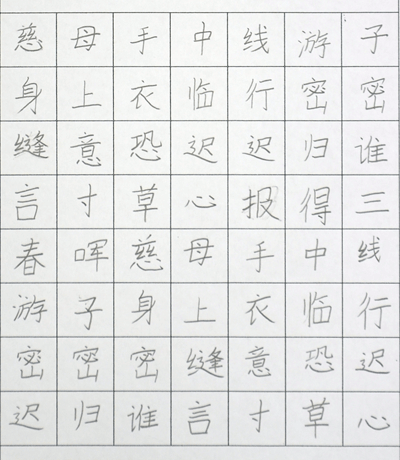 慈母手中线游子
身上衣临行密密
缝意恐迟迟归谁
言寸草心报得三
春晖慈母手中线
游子身上衣临行
密密密缝意恐迟
迟归谁言寸草心